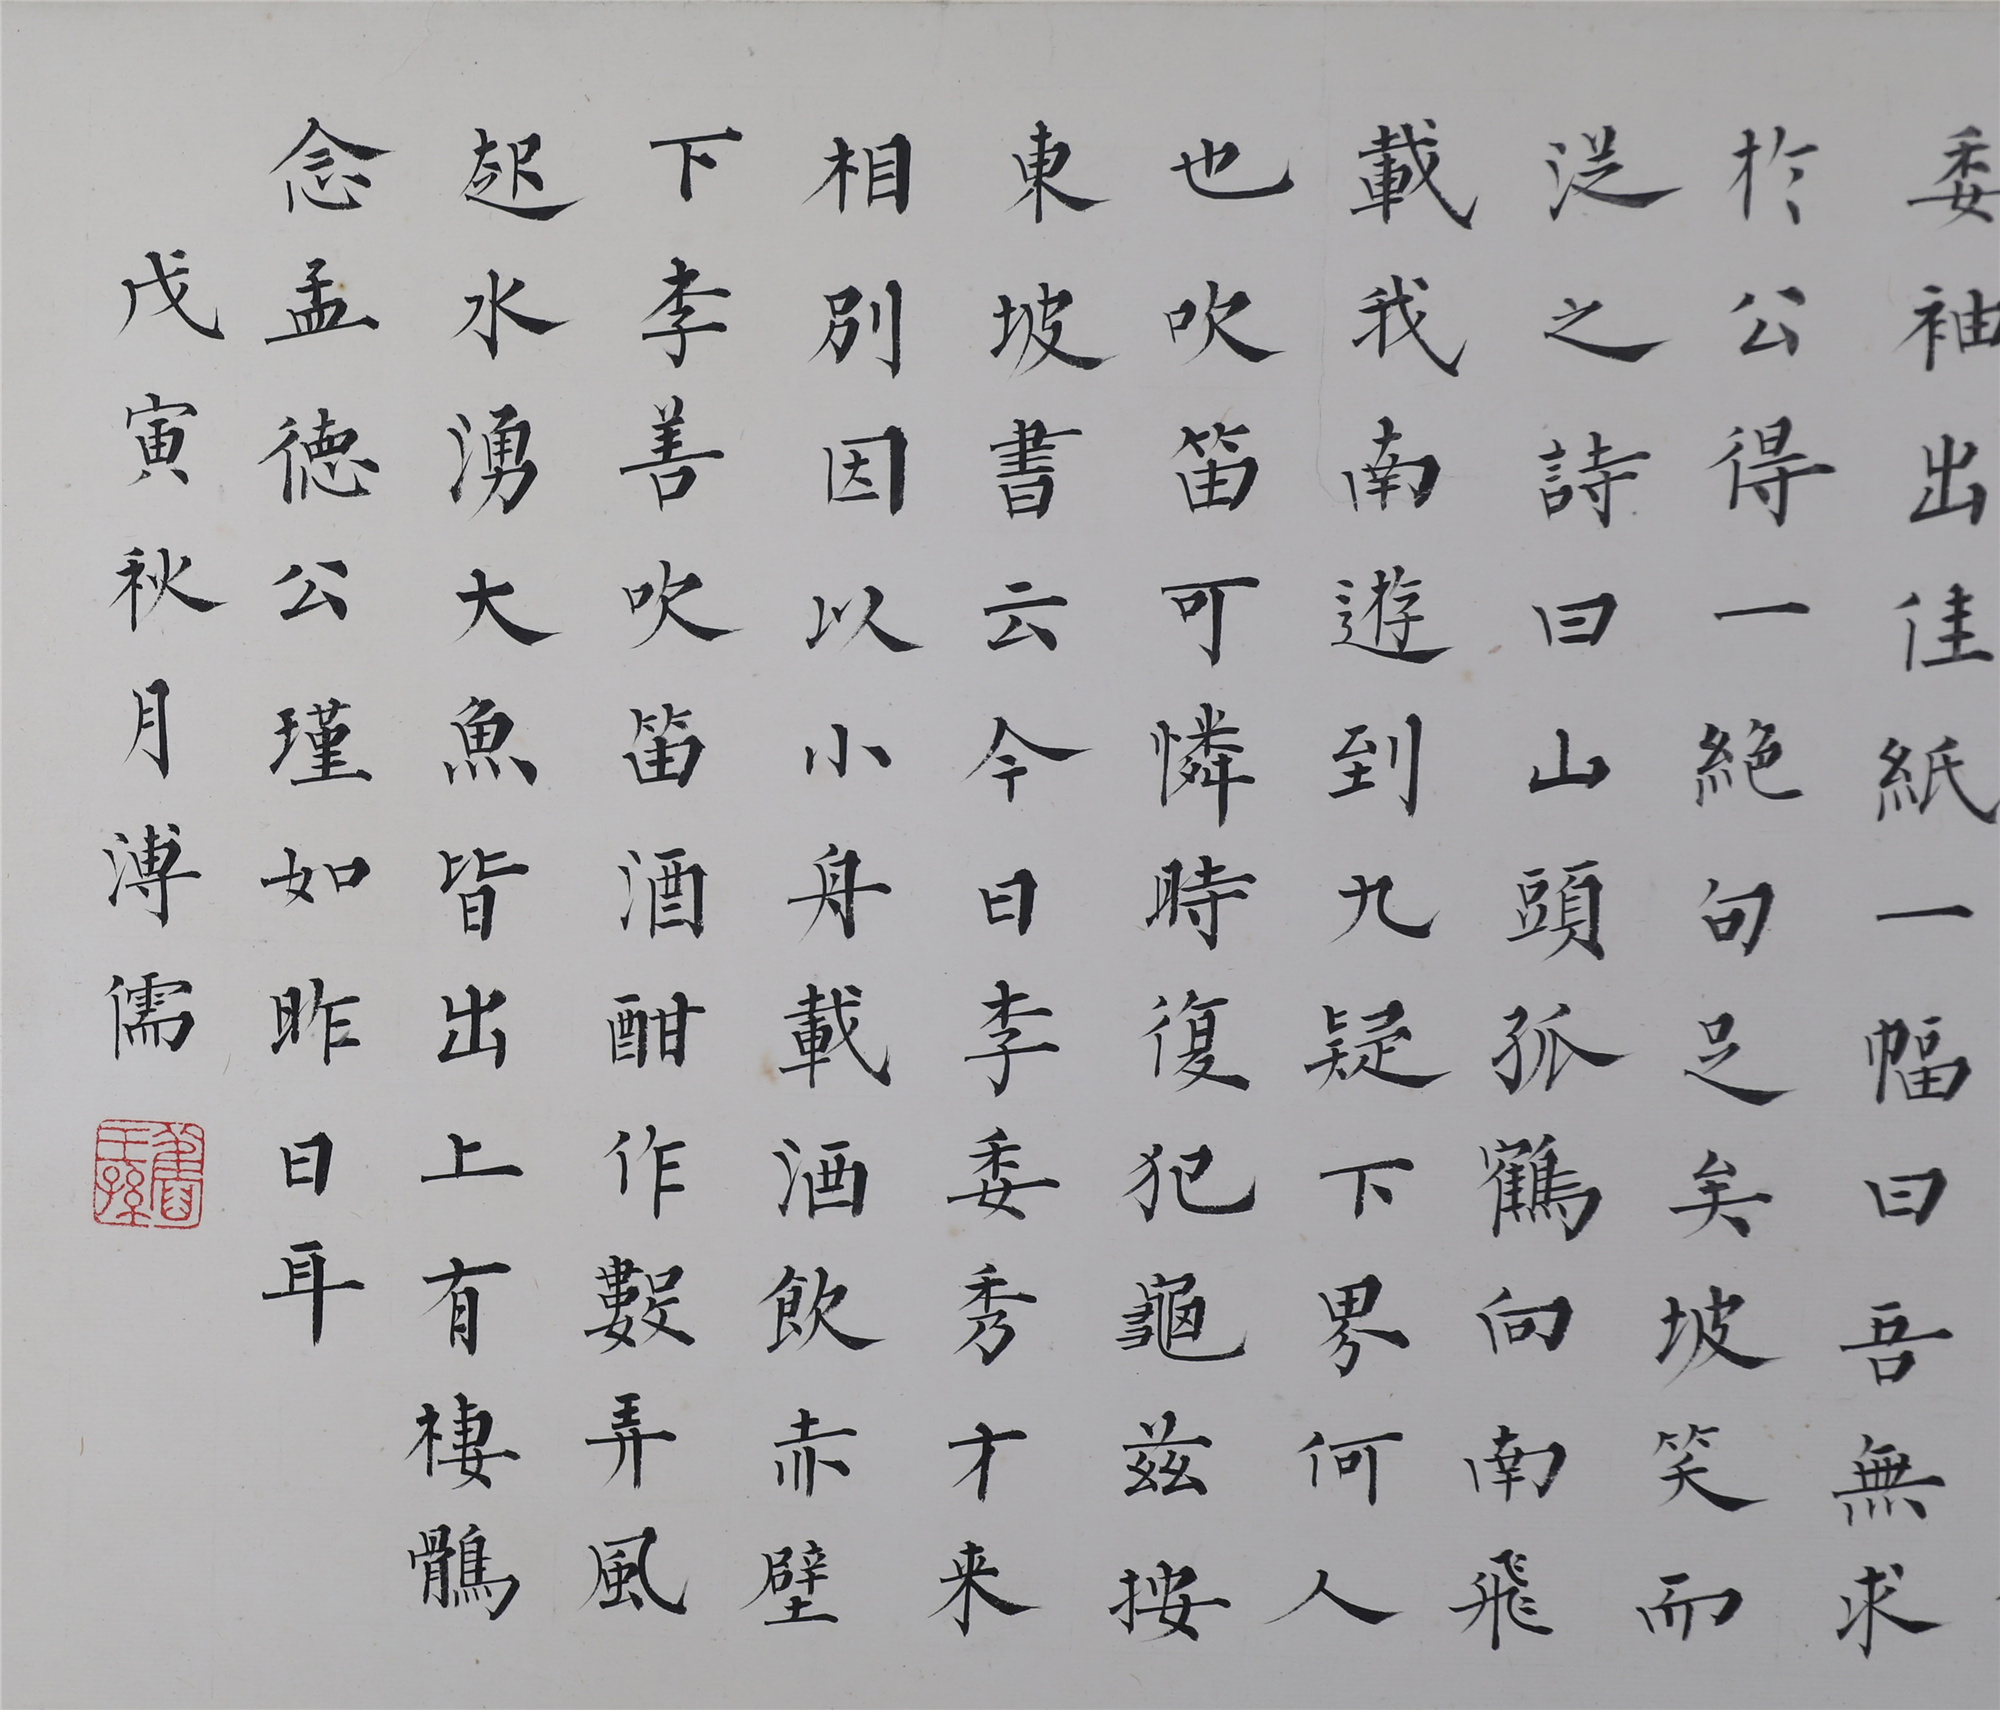 委袖出佳紙一幅曰吾無求
於公得一絕句足矣坡笑而
從之詩曰山頭孤鶴向南飛
載我南遊到九疑下界何人
也吹笛可憐時復犯龜茲按
東坡書云今日李委秀才来
相別因以小舟載酒飲赤壁
下李善吹笛酒酣作數弄風
起水湧大魚皆出上有棲鶻
念孟德公瑾如昨日耳
戊寅秋月溥儒
舊王孫